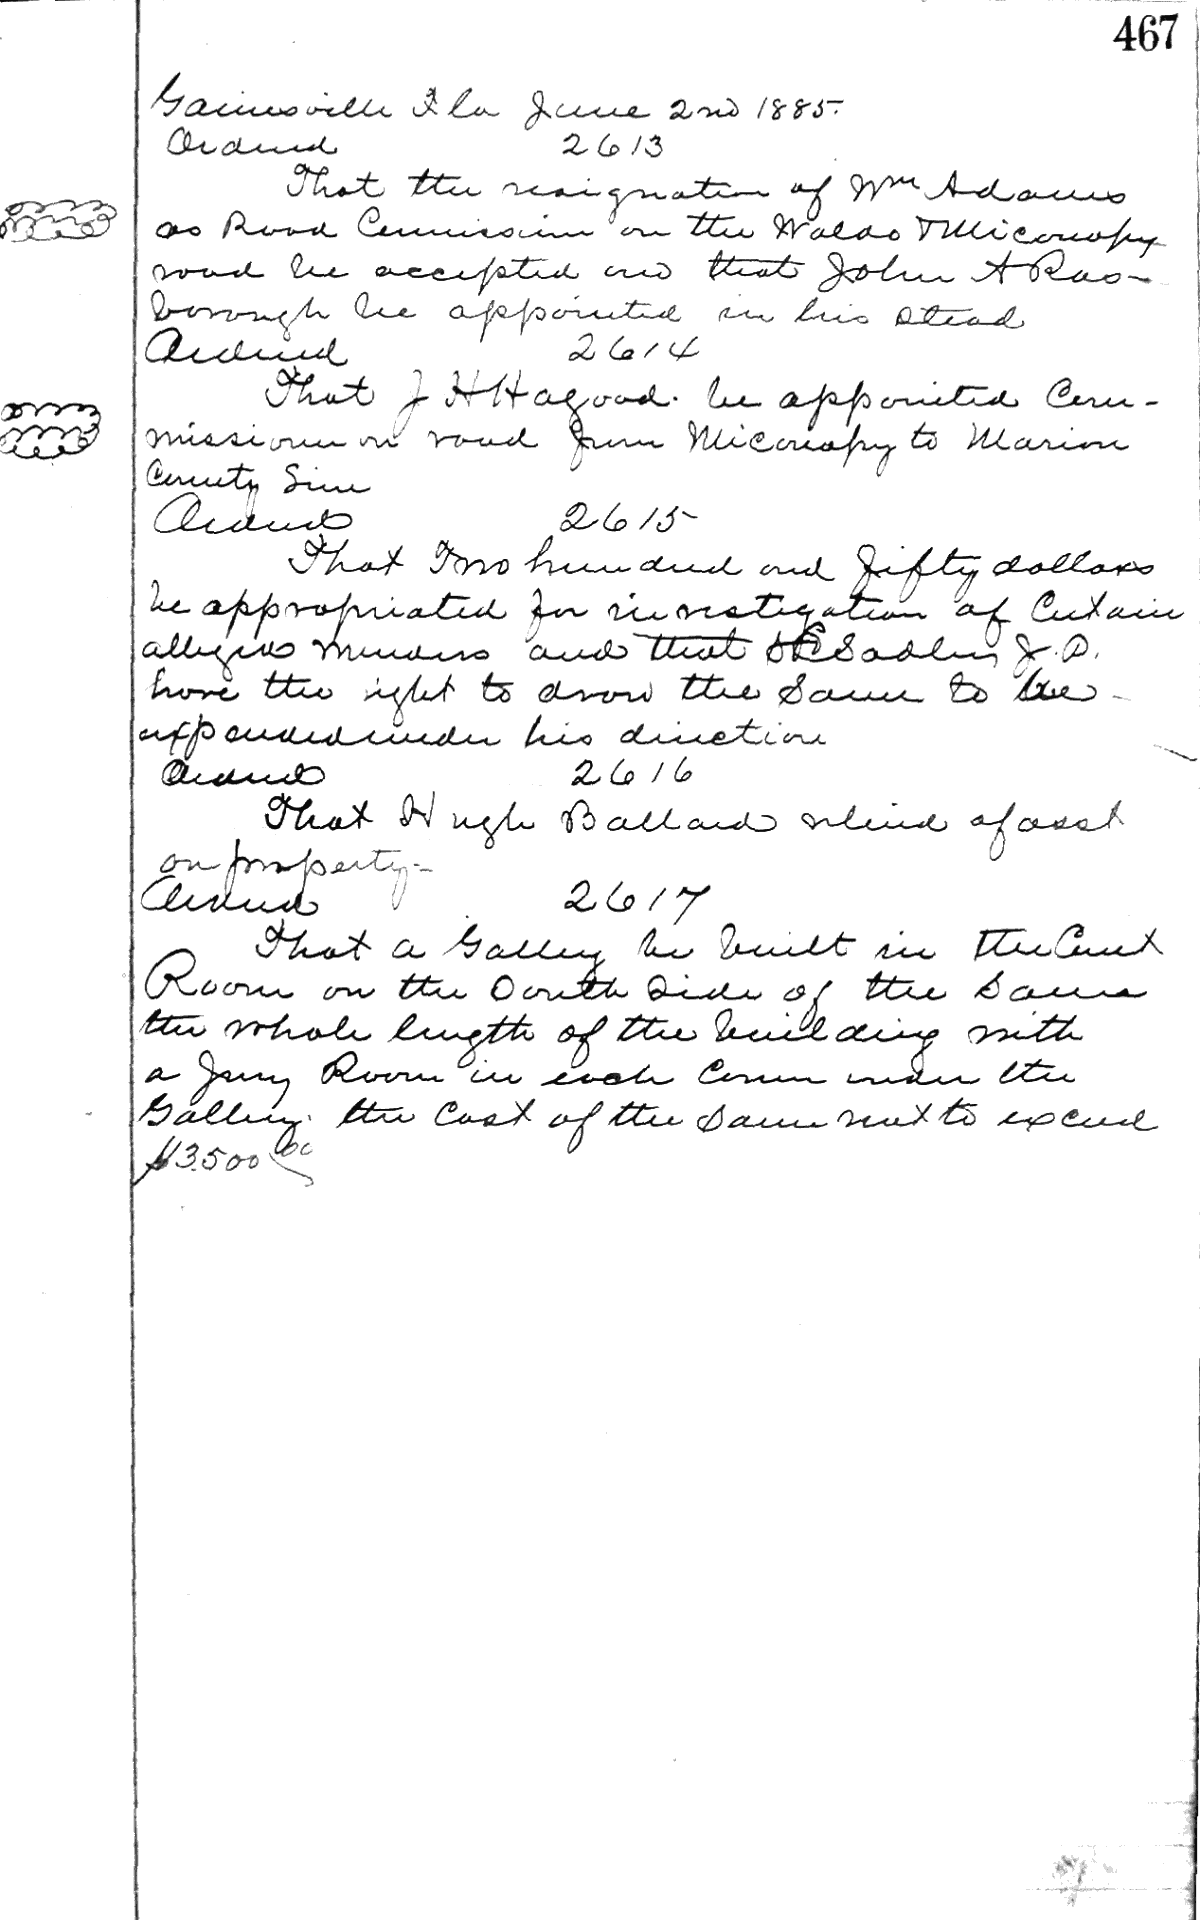 467
Gainesville Fla June 2nd 1885.
Ordered 2613
That the resignation of Wm Adams
as Road Commissioner on the Waldo & Micanopy
road be accepted and that John A Ras-
borough be appointed in his stead
Ordered 2614
That J H Hagood. be appointed Com-
missioner on road from Micanopy to Marion
County Line
Ordered 2615
That Two hundred and fifty dollars
be appropriated for investigation of Certain
alleged murders and that Sadler J.P.
have the right to draw the Same to be
expended under his direction
Ordered 2616
That Hugh Ballard relievd of asst
on property-
Ordered 2617
That a Gallery be built in the Court
Room on the South Side of the Same
the whole length of the building with
a Jury Room in each Corner under the
Gallery. the Cost of the Same not to exceed
$3500 00